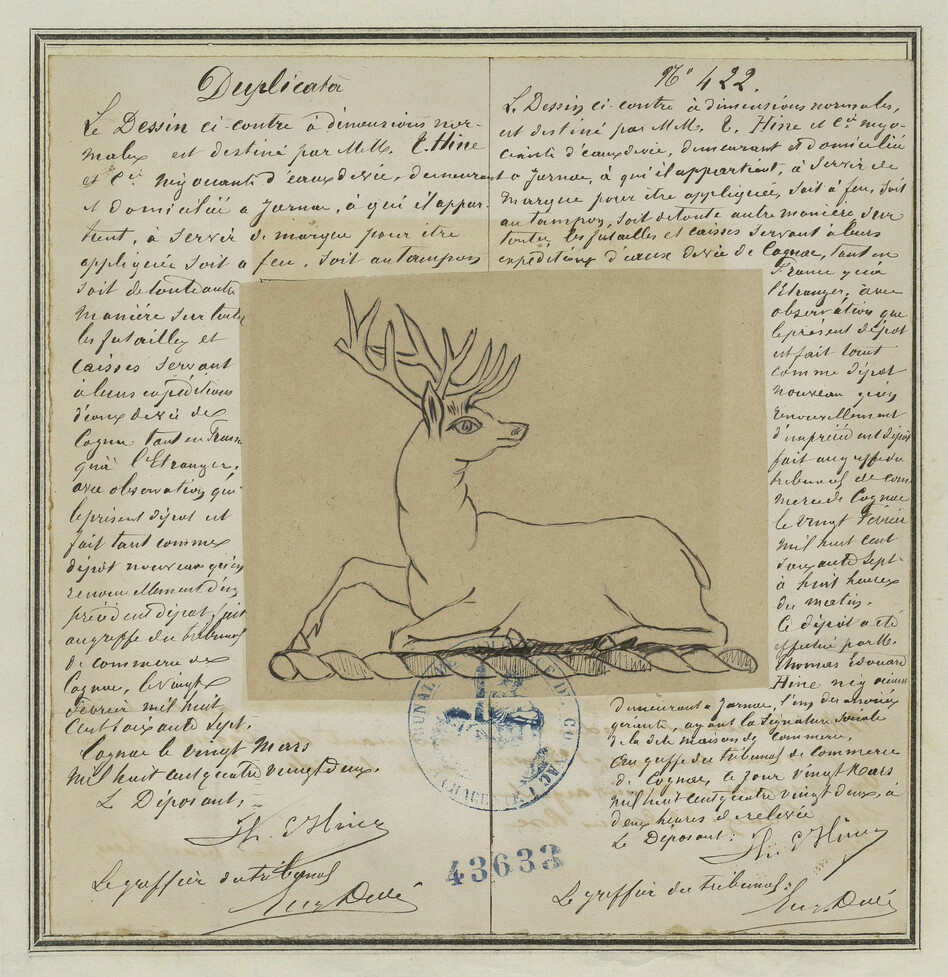 Duplicata
Le Dessin ci-contre à dimensions nor-
males est destiné par M.M. T. Hine
et Cie négociants d'eaux de vie, demeurant
et domicilié a Jarnac, à qui il appar-
tient, à servir de marque pour être
appliquée soit a feu, soit au tampon
soit de toute autre
manière sur toutes
les futailles et
caisses servant
à leurs expéditions
d'eaux de vie de
Cognac tant en France
qu'à l'Etranger,
avec observation que
le présent dépôt est
fait tant comme
dépôt nouveau qu'en
renouvellement d'un
précédent dépôt fait
au greffe du tribunal
de commerce de
Cognac, le vingt
février mil huit
cent soixante sept.
Cognac le vingt Mars
mil huit cent quatre vingt deux.
Le Déposant,
Th. E. Hine
Le greffier du tribunal
N° 422.
Le Dessin ci-contre à dimensions normales,
est destiné par M.M. T. Hine et Cie négo-
ciants d'eaux de vie, demeurant et domicilié
a Jarnac, à qui il appartient, à servir de
marque pour être appliquée, soit à feu, soit
au tampon, soit de toute autre manière sur
toutes les futailles et caisses servant à leurs
expéditions d'eaux de vie de Cognac, tant en
France qu'à
l'étranger, avec
observation que
le présent dépôt
est fait tant
comme dépôt
nouveau qu'en
renouvellement
d'un précédent dépôt
fait au greffe du
tribunal de com-
merce de Cognac
le vingt février
mil huit cent
soixante sept
à huit heures
du matin.
Ce dépôt a été
effectué par M.
Thomas Edouard
Hine négociant
demeurant a Jarnac, l'un des associés
gérants, ayant la signature sociale
de la dite maison de Commerce.
Au greffe du tribunal de Commerce
de Cognac, ce jour vingt Mars
mil huit cent quatre vingt deux, à
deux heures de relevée
Le Déposant:
Th. E. Hine
Le greffier du tribunal:
43633